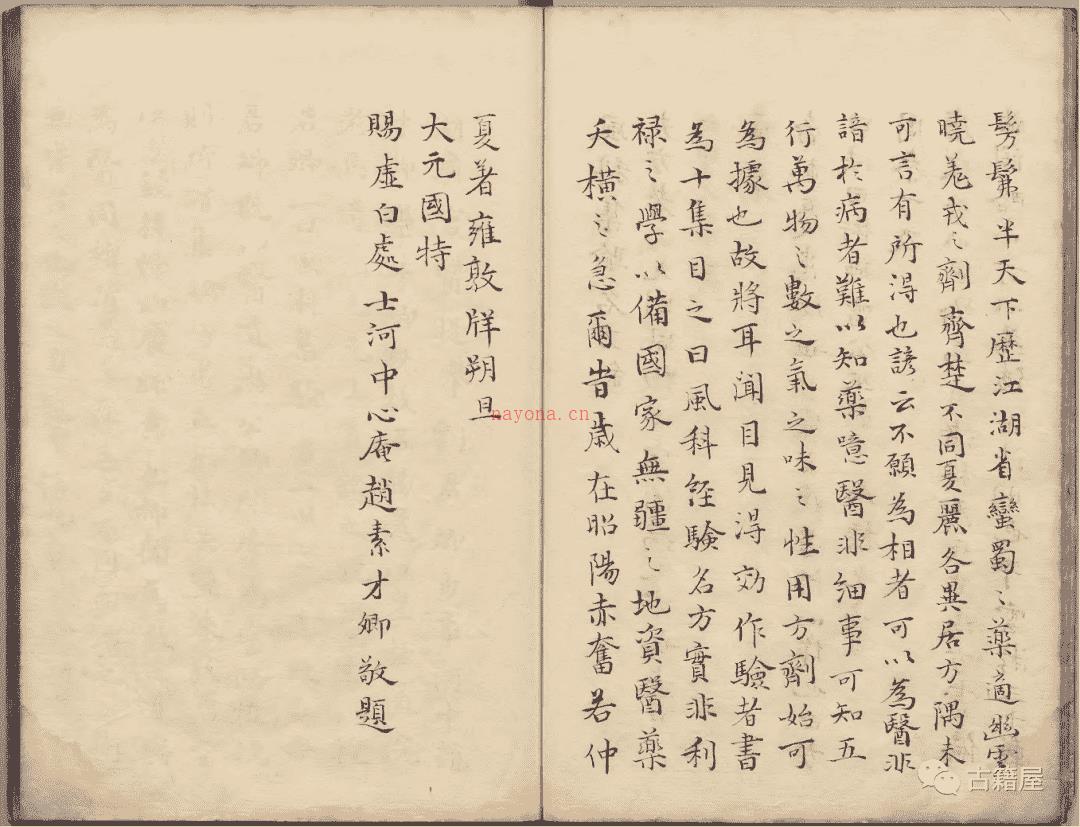 髣髴半天下歷江湖省蠻蜀〻藥適幽雲
曉羌戎〻劑齊楚不同夏麗各異居方隅未
可言有所淂也諺云不願為相者可以為醫非
諳扵病者難以知藥噫醫非細事可知五
行萬物〻數之氣之味〻性用方劑始可
為據也故將耳聞目見淂効作驗者書
為十集目之曰風科经驗名方實非利
禄之學以備國家無疆之地資醫藥
夭橫之急爾旹歲在昭陽赤奮若仲
夏著雍敦牂朔旦
大元國特
賜虛白處士河中心庵趙素才卿敬題
nayona.cn
古籍屋